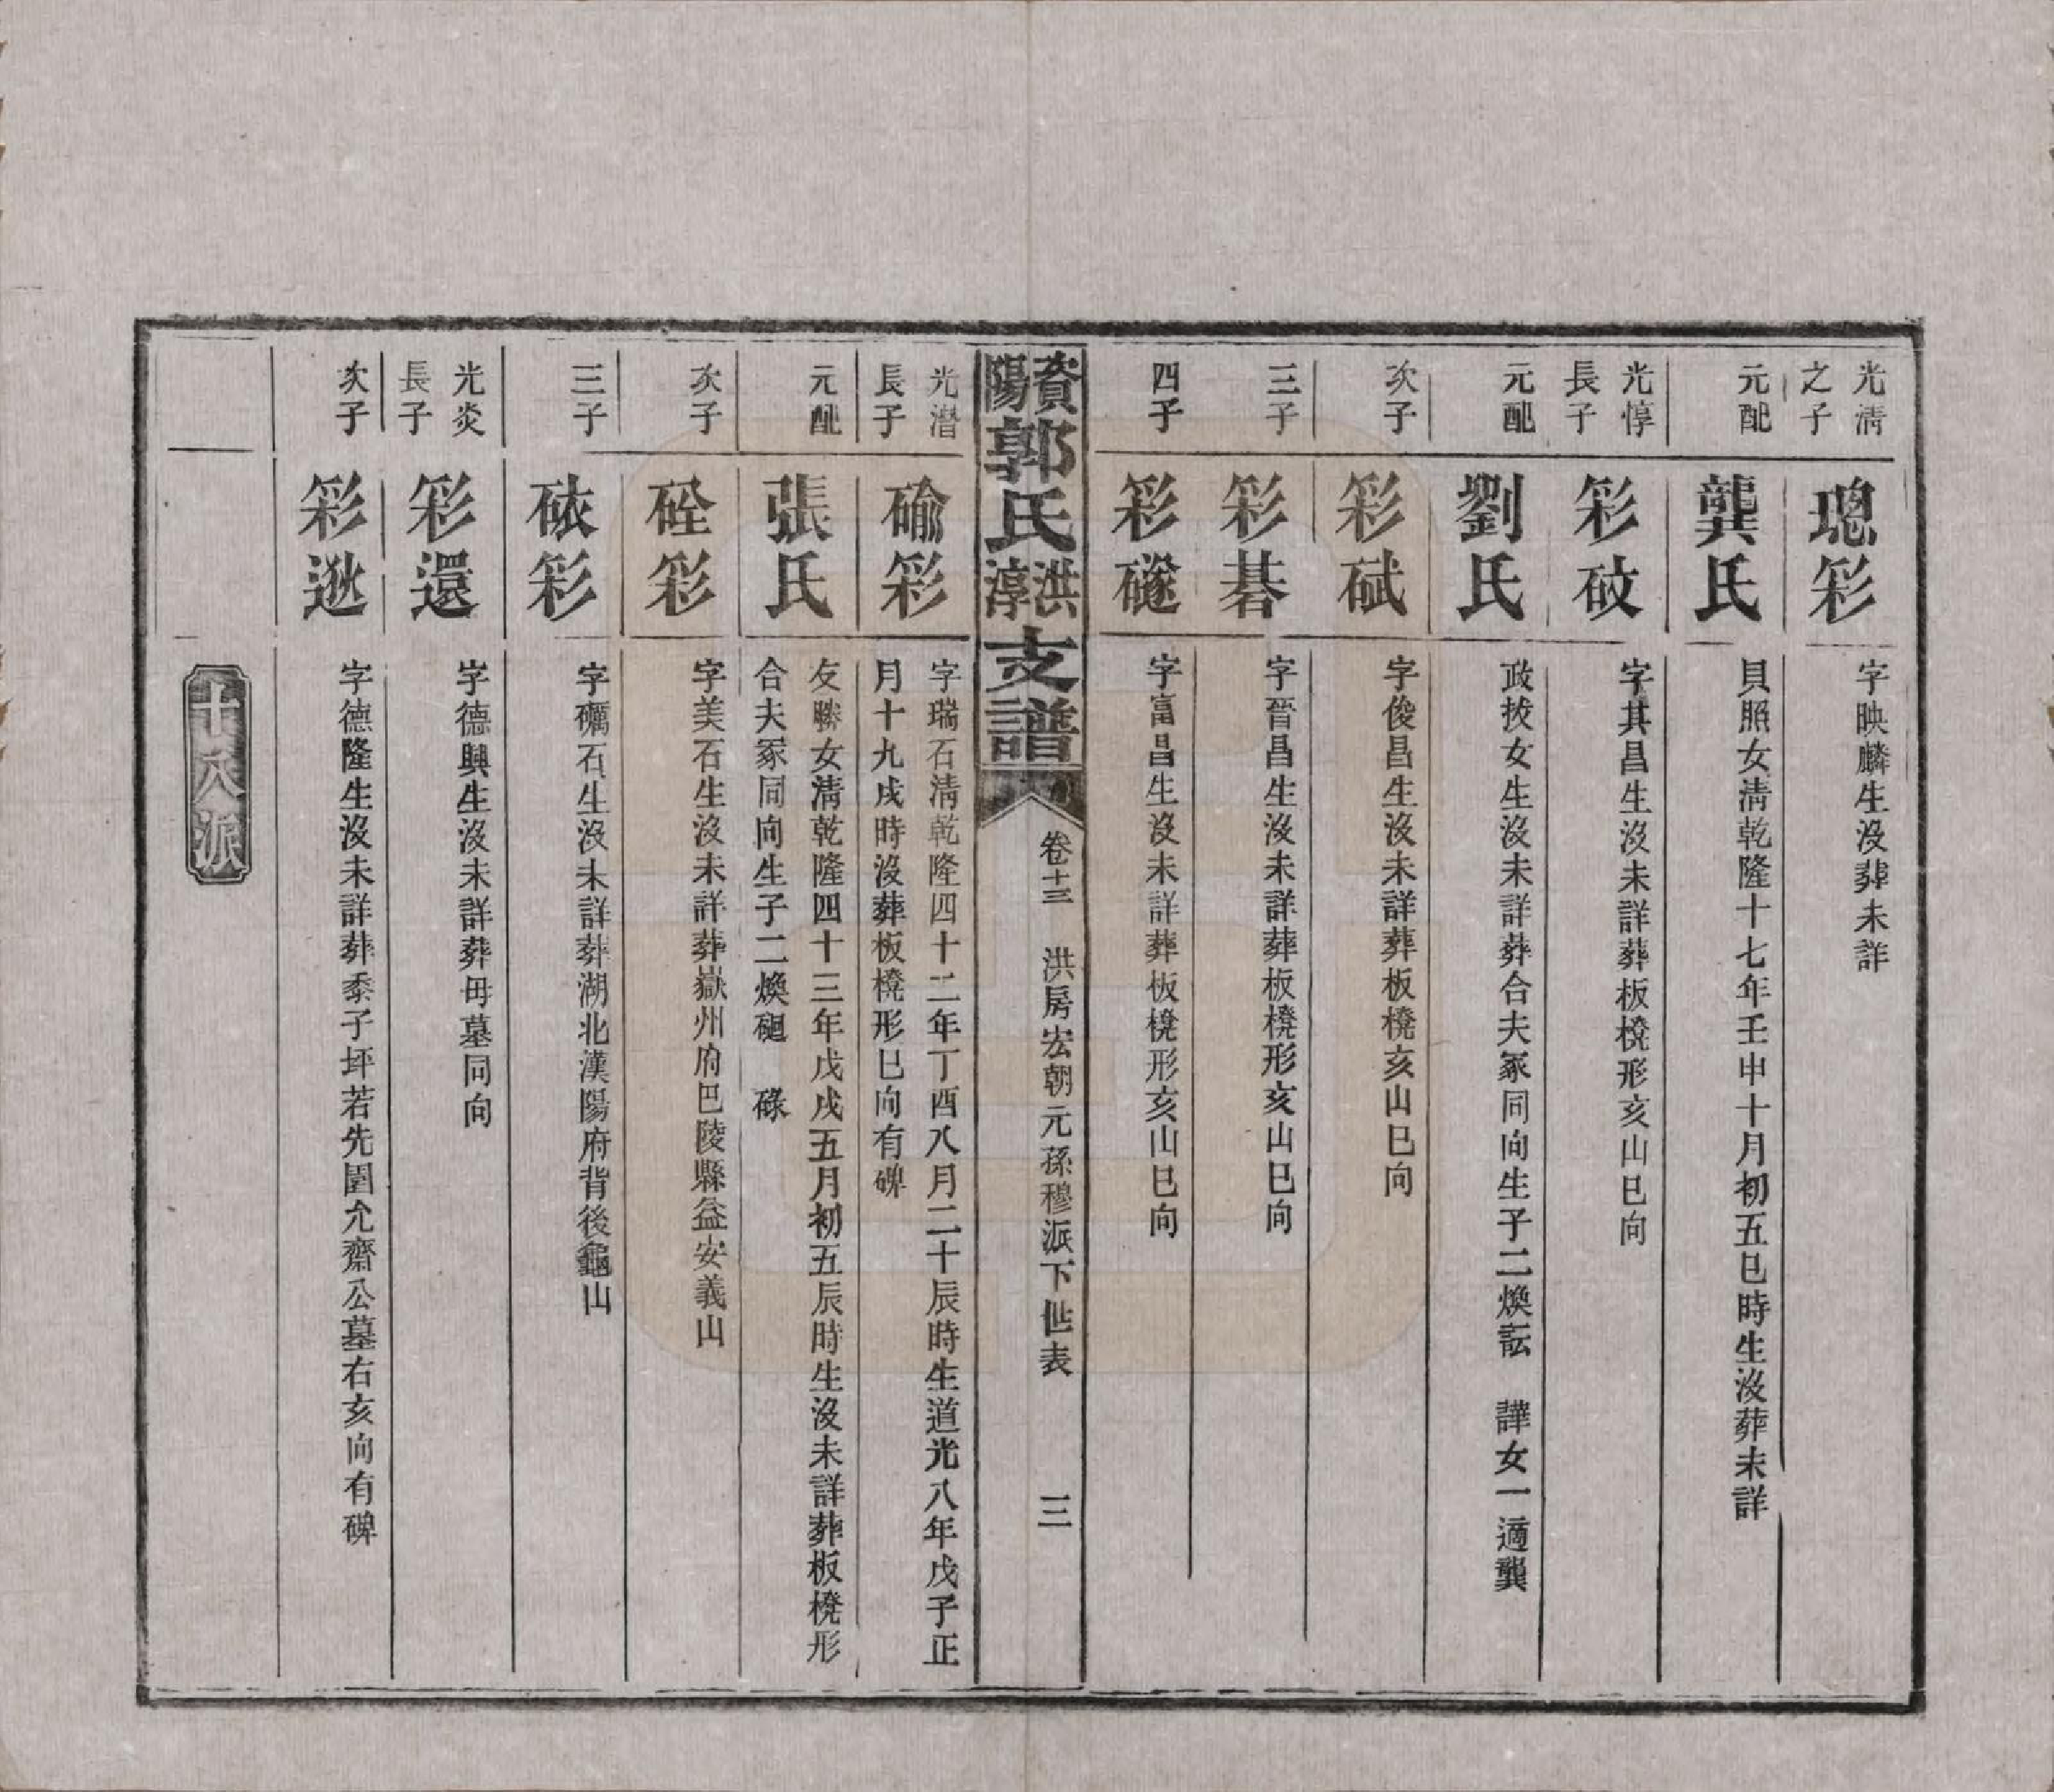 光清
之子
璁彩
字映麟生沒葬未詳
元配
龔氏
貝照女清乾隆十七年壬申十月初五巳時生沒葬未詳
光惇
長子
彩砇
字其昌生沒未詳葬板櫈形亥山巳向
元配
劉氏
政扳女生沒未詳葬合夫冢同向生子二煥䛘 譁女一適龔
次子
彩碔
字俊昌生沒未詳葬板櫈亥山巳向
三子
彩碁
字晉昌生沒未詳葬板櫈形亥山巳向
四子
彩䃍
字富昌生沒未詳葬板櫈形亥山巳向
資陽郭氏洪淳支譜
卷十三 洪房宏朝元孫穆派下世表
三
光潛
長子
碖彩
字瑞石清乾隆四十二年丁酉八月二十辰時生道光八年戊子正
月十九戌時沒葬板櫈形巳向有碑
元配
張氏
友勝女清乾隆四十三年戊戌五月初五辰時生沒未詳葬板櫈形
合夫冢同向生子二煥 碌
次子
硂彩
字美石生沒未詳葬嶽州府巴陵縣益安義山
三子
硋彩
字礪石生沒未詳葬湖北漢陽府背後龜山
光炎
長子
彩還
字德興生沒未詳葬母墓同向
次子
彩逖
字德隆生沒未詳葬黍子坪若先園允齋公墓右亥向有碑
十八派